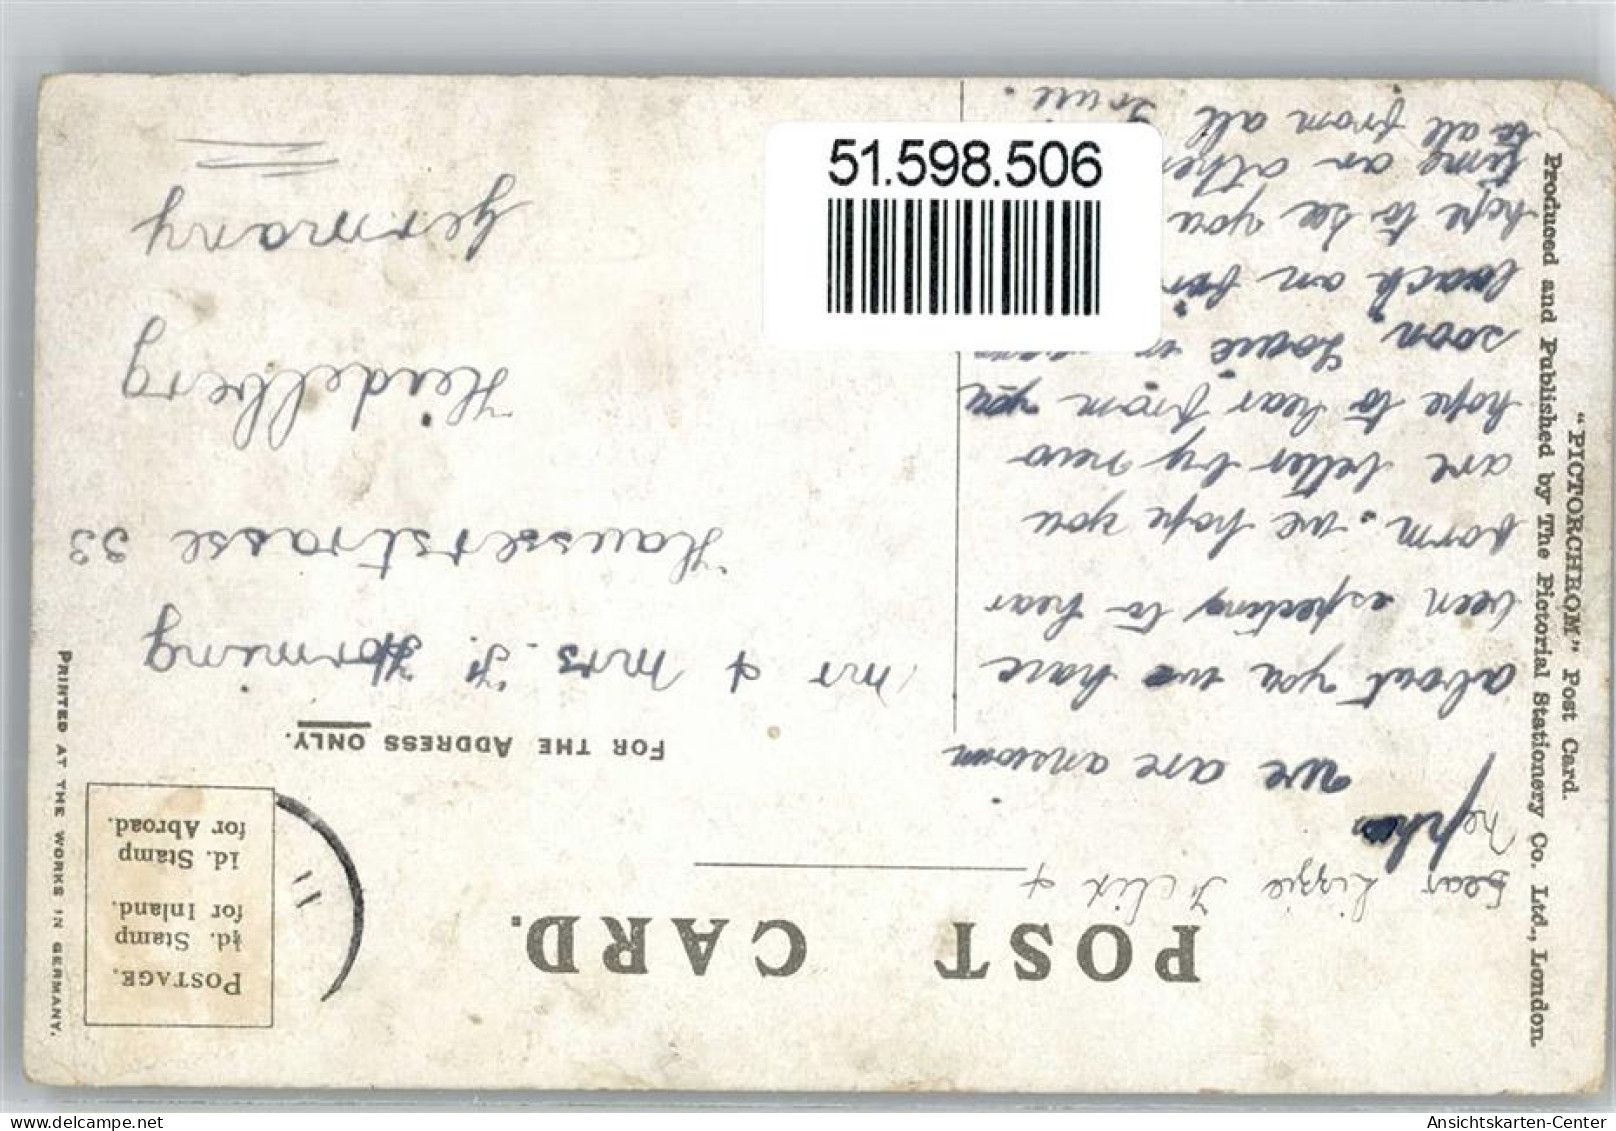 POST CARD.
"PICTORCHROM" Post Card.
Produced and Published by The Pictorial Stationery Co. Ltd., London.
Dear Lizzie Felix &
neph
we are ansioun
about you we have
been especting to hear
form. we hope you
are better by now
hope to hear from you
soon, Louie
back an for
hope to see you
time an other
to all from all
FOR THE ADDRESS ONLY.
Mr & Mrs. F. Horming
Hausserstrasse 33
Heidelberg
Germany
POSTAGE.
½d. Stamp
for Inland.
1d. Stamp
for Abroad.
11
PRINTED AT THE WORKS IN GERMANY.
51.598.506
oldthing.de
Ansichtskarten-Center